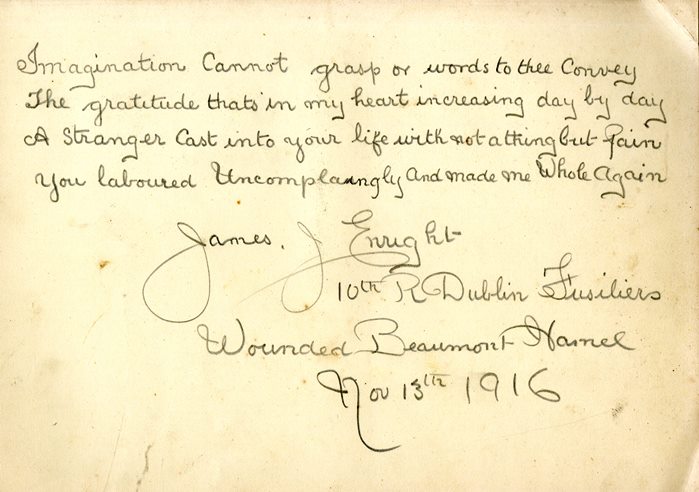 Imagination Cannot grasp or words to thee Convey
The gratitude thats in my heart increasing day by day
A Stranger Cast into your life with not a thing but Pain
You laboured Uncomplaingly and made me Whole Again
James. J Enright
10th R Dublin Fusiliers
Wounded Beaumont Hamel
Nov 13th 1916